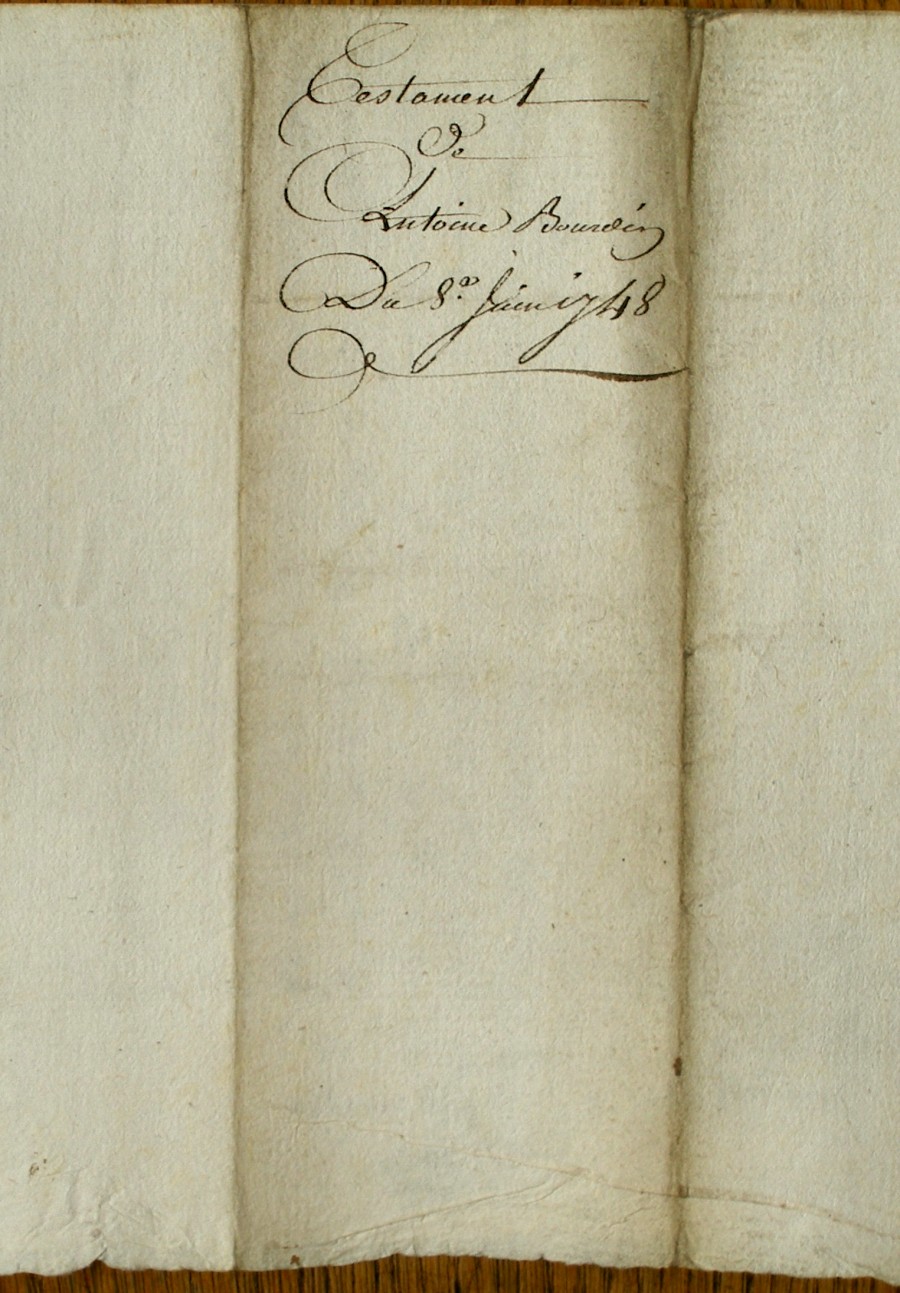 Testament
De
Antoine Bourdin
Du 8.e Juin 1748